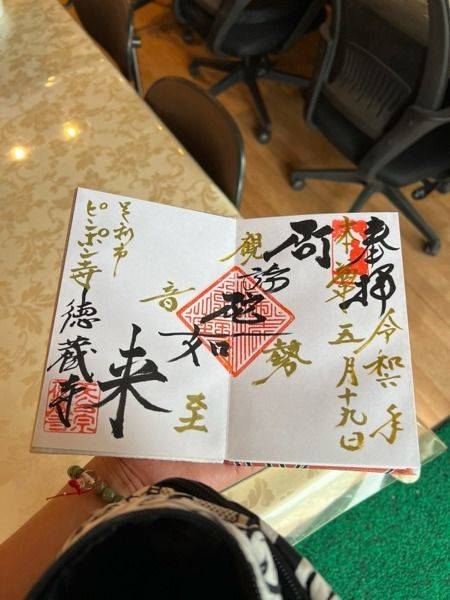 奉拝
令和六年
本尊 五月十九日
阿弥陀如来
観音
勢至
足利市
ピンポン寺 徳蔵寺